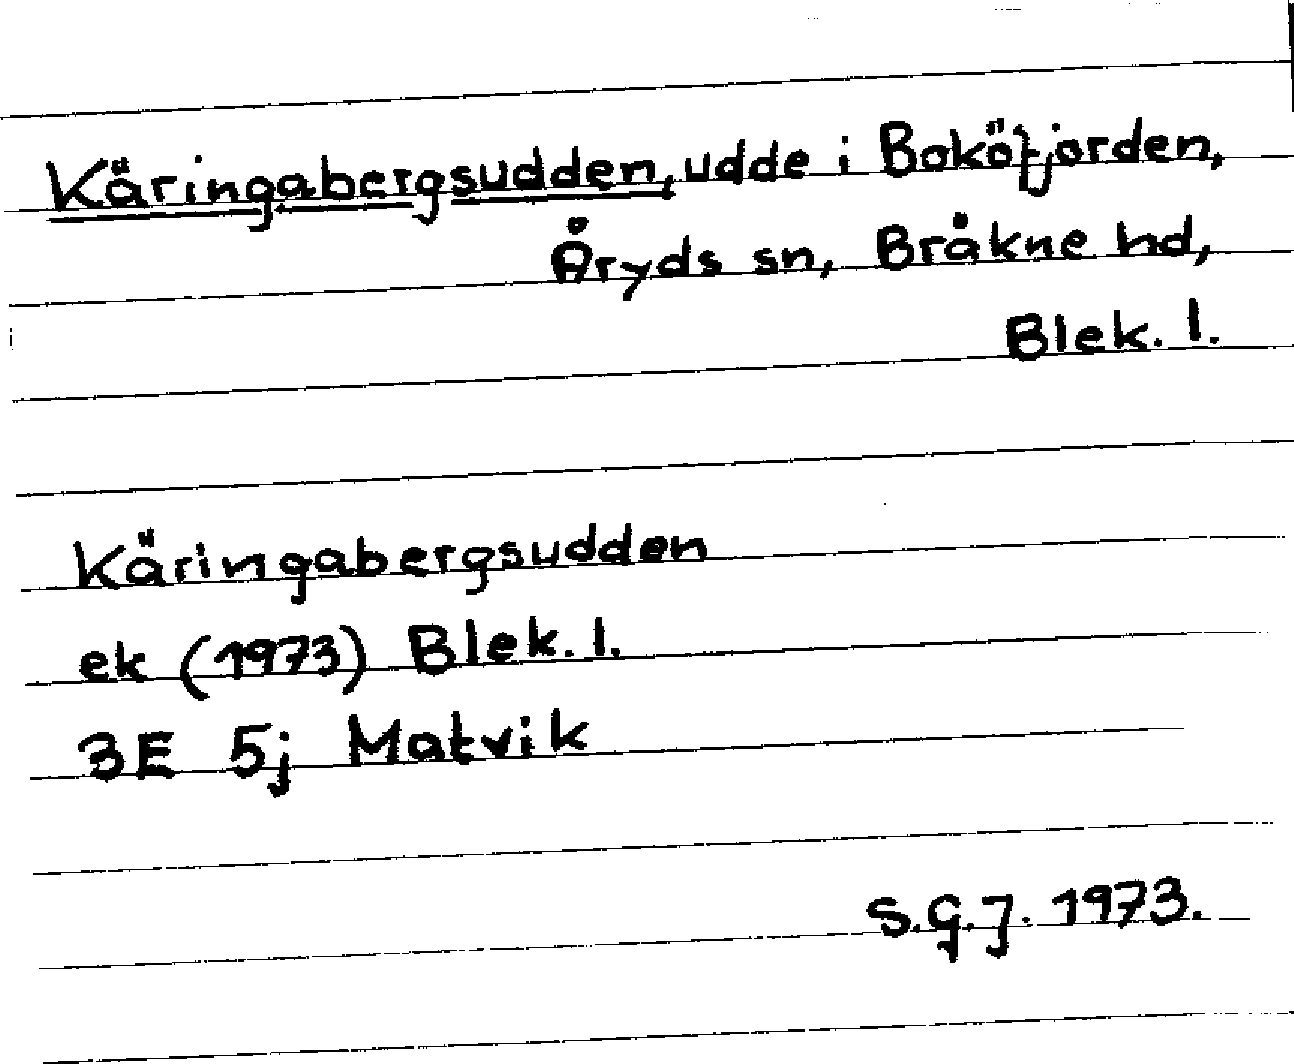 Käringabergsudden, udde i Boköfjorden,
Åryds sn, Bråkne hd,
Blek. l.
Käringabergsudden
ek (1973) Blek. l.
3E 5j Matvik
S.G.J. 1973.